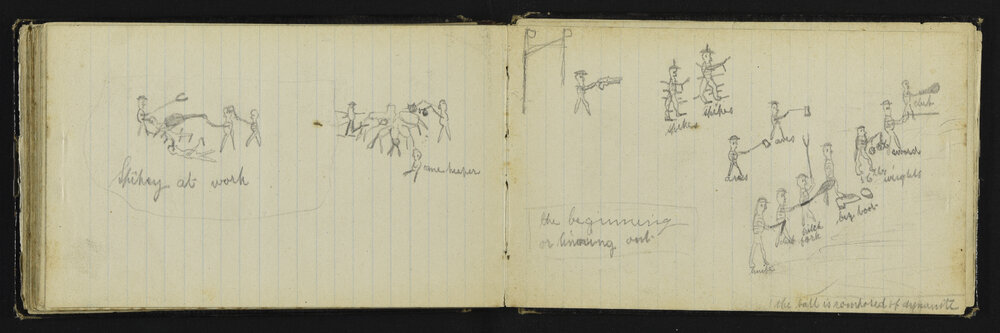 Spikey at work
time keeper
spikes
spikes
axes
axes
club
sword
weights
big boot
pitch
fork
club
knife
the beginning
or lineing out
the ball is composed of dynamite